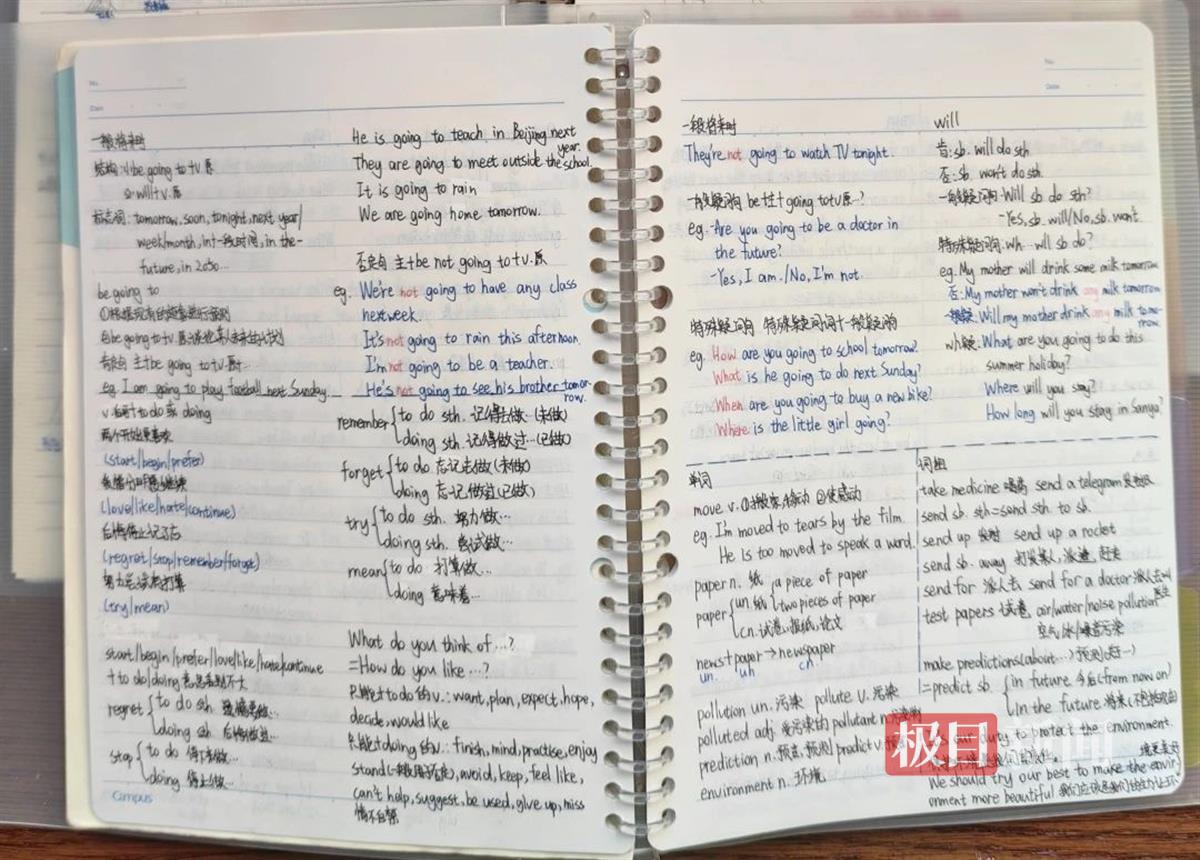 No.
Date
一般将来时
结构:①be going to+v.原
②will+v.原
标志词:tomorrow, soon, tonight, next year/
week/month, in+一段时间, in the
future, in 2050...
be going to
①根据现有的迹象进行预测
②be going to+v.原
肯定句 主+be going to+v.原+...
eg. I am going to play football next Sunday.
v.后可+to do 或 doing
两个开始更喜欢
(start/begin/prefer)
(love/like/hate/continue)
后悔停止记了忘
(regret/stop/remember/forget)
努力
打算
(try/mean)
start/begin/prefer/love/like/hate/continue
+to do/doing 意思差别不大
regret to do sth. 遗憾要做...
doing sth. 后悔做过...
stop to do 停下来做...
doing 停止做...
Campus
He is going to teach in Beijing next
year.
They are going to meet outside the school.
It is going to rain
We are going home tomorrow.
否定句 主+be not going to+v.原
eg. We're not going to have any class
next week.
It's not going to rain this afternoon.
I'm not going to be a teacher.
He's not going to see his brother tomor-
row.
remember to do sth. 记得去做 (未做)
doing sth. 记得做过...(已做)
forget to do 忘记去做(未做)
doing 忘记做过(已做)
try to do sth. 努力做...
doing sth. 尝试做...
mean to do 打算做...
doing 意味着...
What do you think of...?
=How do you like...?
只能+to do的v.: want, plan, expect, hope,
decide, would like
只能+doing的v.: finish, mind, practise, enjoy
stand, avoid, keep, feel like,
can't help, suggest, be used, give up, miss
情不自禁
No.
Date
一般将来时
They're not going to watch TV tonight.
一般疑问句 be+主+going to+v.原...?
eg. Are you going to be a doctor in
the future?
-Yes, I am./No, I'm not.
特殊疑问句 特殊疑问词+一般疑问句
eg. How are you going to school tomorrow?
What is he going to do next Sunday?
When are you going to buy a new bike?
Where is the little girl going?
will
肯:sb. will do sth
否:sb. won't do sth.
一般疑问句:Will sb do sth?
-Yes, sb. will/No, sb. won't
特殊疑问句:wh... will sb do?
eg. My mother will drink some milk tomorrow
否:My mother won't drink any milk tomorrow
一般疑:Will my mother drink any milk tomo-
rrow
wh疑:What are you going to do this
summer holiday?
Where will you stay?
How long will you stay in Sanya?
单词
move v. ①搬家,移动 ②使感动
eg. I'm moved to tears by the film.
He is too moved to speak a word.
paper n. 纸 a piece of paper
paper un. 纸 two pieces of paper
cn. 试卷,报纸,论文
news+paper→newspaper
un. un cn.
pollution un. 污染 pollute v. 污染
polluted adj. 受污染的 pollutant n.
prediction n. 预言,预测 predict v.
environment n. 环境
词组
take medicine 喝药 send a telegram 发电报
send sb. sth=send sth. to sb.
send up 发射 send up a rocket
send sb. away
send for 派人去 send for a doctor 派人去叫
医生
test papers 试卷 air/water/noise pollution
空气/水/噪音污染
make predictions(about...)
=predict sb. in future 今后(from now on)
in the future 将来
our duty to protect the environment.
We should try our best to make the envir
onment more beautiful
极目新闻